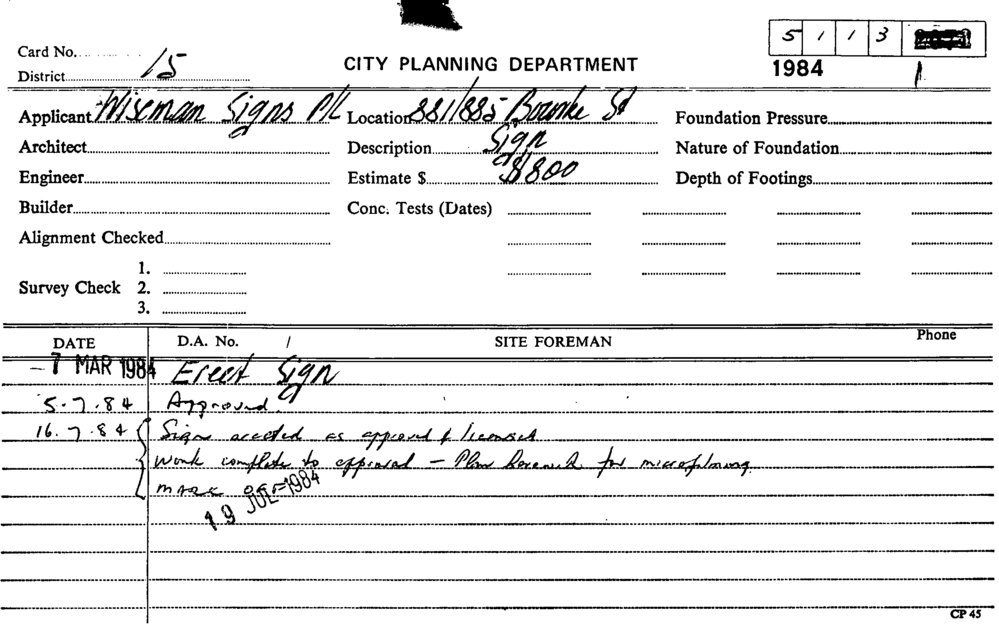 5 1 1 3
Card No.
District 15
CITY PLANNING DEPARTMENT
1984 1
Applicant Wiseman Signs P/L Location 881/885 Bourke St Foundation Pressure
Architect Description Sign Nature of Foundation
Engineer Estimate $ $1800 Depth of Footings
Builder Conc. Tests (Dates)
Alignment Checked
1.
Survey Check 2.
3.
DATE D.A. No. / SITE FOREMAN Phone
- 7 MAR 1984 Erect Sign
5.7.84 Approved.
16.7.84 Signs erected as approved & licensed
Work complete to approval - Plan herewith for microfilming
MARK OFF
19 JUL 1984
CP 45